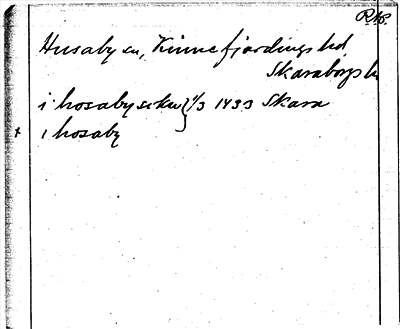 RAP.
Husaby sn, Kinnefjärdings hd,
Skaraborgs l
i hosaby sokn } 1/3 1433 Skara
+ i hosaby